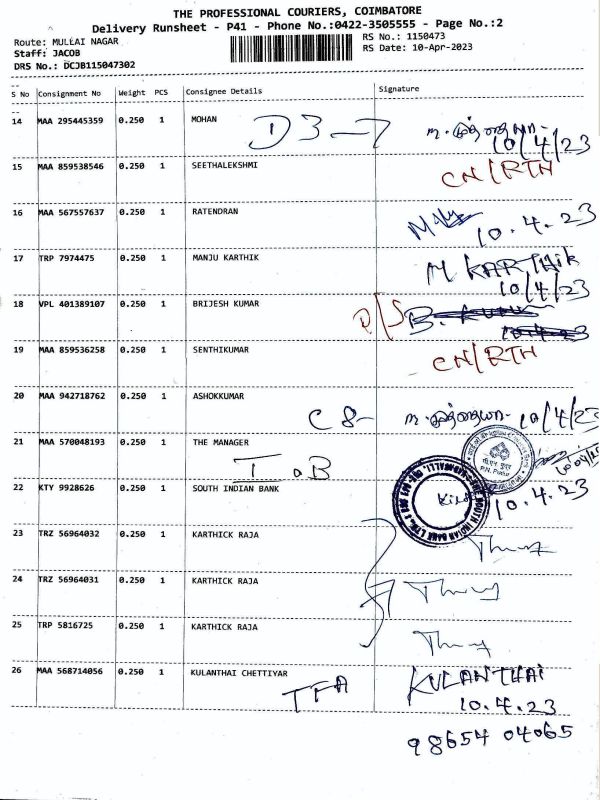 THE PROFESSIONAL COURIERS, COIMBATORE
Delivery Runsheet - P41 - Phone No.:0422-3505555 - Page No.:2
Route: MULLAI NAGAR
RS No.: 1150473
Staff: JACOB
RS Date: 10-Apr-2023
DRS No.: DCJB115047302
S No Consignment No Weight PCS Consignee Details Signature
14 MAA 295445359 0.250 1 MOHAN D3-7
10/4/23
15 MAA 859538546 0.250 1 SEETHALEKSHMI CN/RTH
16 MAA 567557637 0.250 1 RATENDRAN 10.4.23
17 TRP 7974475 0.250 1 MANJU KARTHIK M KARTHIK
10/4/23
18 VPL 401389107 0.250 1 BRIJESH KUMAR D/S
19 MAA 859536258 0.250 1 SENTHIKUMAR CN/RTH
20 MAA 942718762 0.250 1 ASHOKKUMAR C8- 10/4/23
21 MAA 570048193 0.250 1 THE MANAGER IOB
P.N. Pudur
22 KTY 9928626 0.250 1 SOUTH INDIAN BANK 10.4.23
SOUTH INDIAN BANK LTD.
23 TRZ 56964032 0.250 1 KARTHICK RAJA
24 TRZ 56964031 0.250 1 KARTHICK RAJA
25 TRP 5816725 0.250 1 KARTHICK RAJA
26 MAA 568714056 0.250 1 KULANTHAI CHETTIYAR TFA KULANTHAI
10.4.23
98654 04065